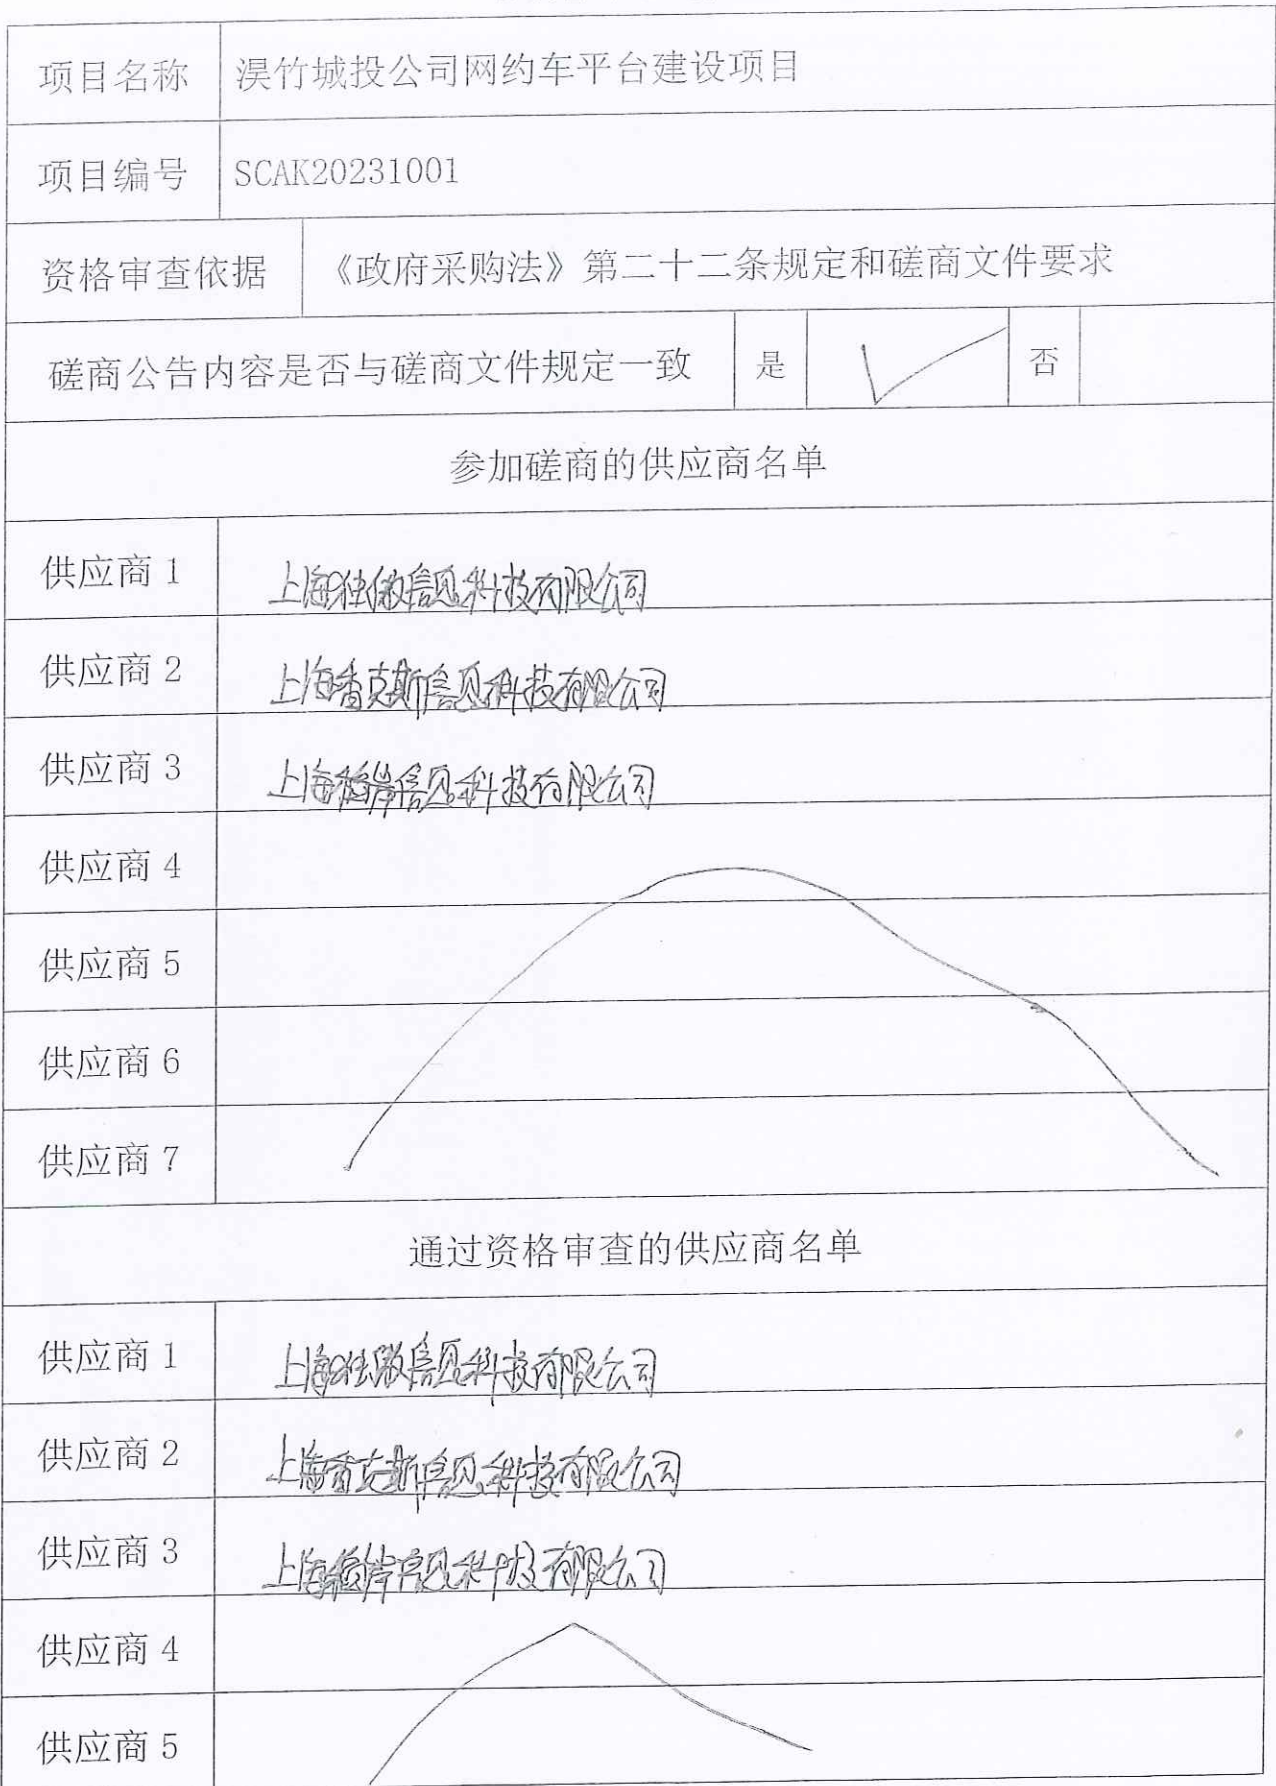 项目名称 淏竹城投公司网约车平台建设项目
项目编号 SCAK20231001
资格审查依据 《政府采购法》第二十二条规定和磋商文件要求
磋商公告内容是否与磋商文件规定一致 是 ✓ 否
参加磋商的供应商名单
供应商1 上海 信息科技有限公司
供应商2 上海香克斯信息科技有限公司
供应商3 上海 岸信息科技有限公司
供应商4
供应商5
供应商6
供应商7
通过资格审查的供应商名单
供应商1 上海 信息科技有限公司
供应商2 上海香克斯信息科技有限公司
供应商3 上海 岸信息科技有限公司
供应商4
供应商5